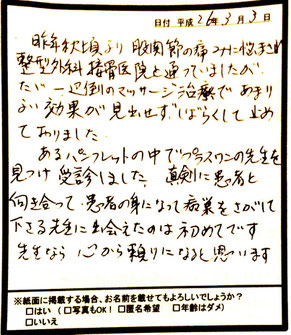 日付 平成 26年 3月 3日
昨年秋頃より股関節の痛みに悩まされ
整型外科 接骨医院と通っていましたが
ただ一辺倒のマッサージ治療であまり
よい効果が見出せず しばらくして止め
ておりました。
あるパンフレットの中でプラスワンの先生を
見つけ受診しました。真剣に患者と
向き合って、患者の身になって病巣をさがして
下さる先生に出会えたのは初めてです
先生なら心から頼りになると思います
※紙面に掲載する場合、お名前を載せてもよろしいでしょうか？
□はい（□写真もOK！ □匿名希望 □年齢はダメ）
□いいえ